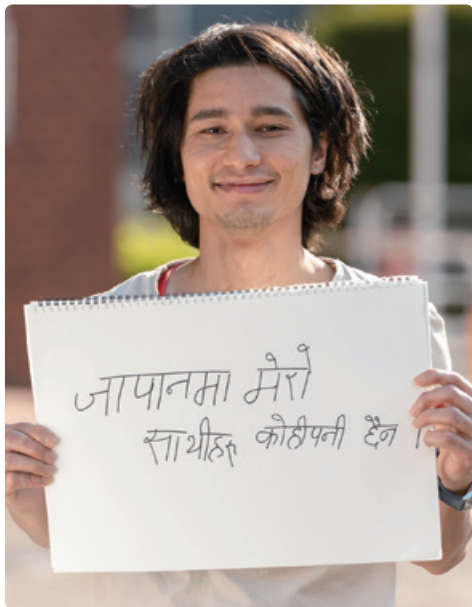 जापानमा मेरो
साथीहरू कोहीपनी छैन ।